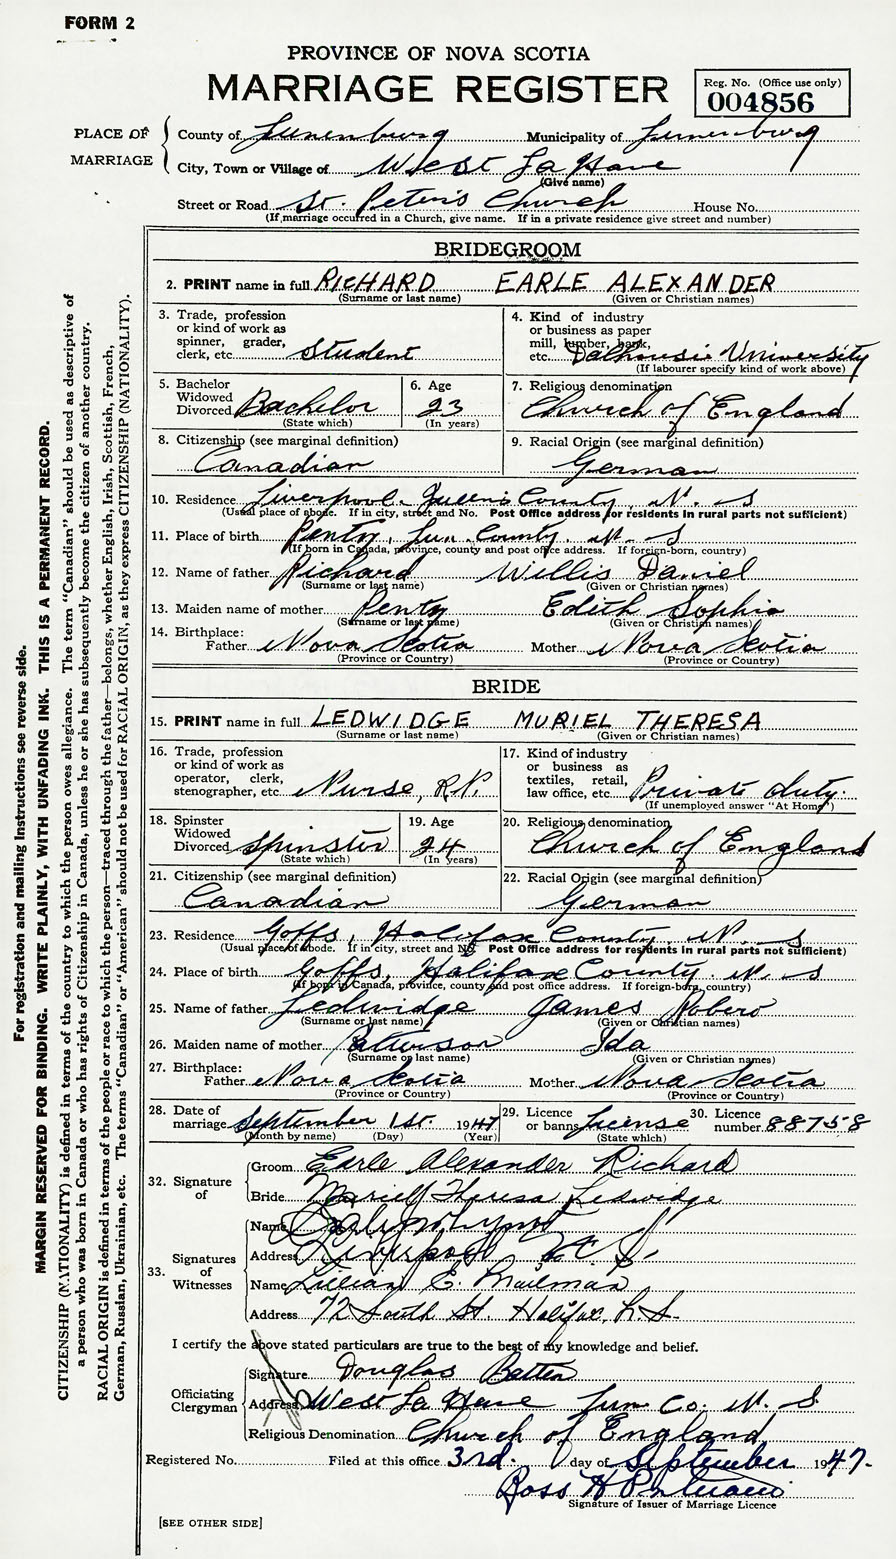 FORM 2
PROVINCE OF NOVA SCOTIA
MARRIAGE REGISTER
Reg. No. (Office use only)
004856
PLACE OF MARRIAGE
County of Lunenburg Municipality of Lunenburg
City, Town or Village of West La Have
(Give name)
Street or Road St. Peter's Church House No.
(If marriage occurred in a Church, give name. If in a private residence give street and number)
BRIDEGROOM
2. PRINT name in full RICHARD EARLE ALEXANDER
(Surname or last name) (Given or Christian names)
3. Trade, profession or kind of work as spinner, grader, clerk, etc. Student
4. Kind of industry or business as paper mill, lumber, bank, etc. Dalhousie University
(If labourer specify kind of work above)
5. Bachelor Widowed Divorced Bachelor
(State which)
6. Age 23
(In years)
7. Religious denomination Church of England
8. Citizenship (see marginal definition) Canadian
9. Racial Origin (see marginal definition) German
10. Residence Liverpool. Queens County, N. S
(Usual place of abode. If in city, street and No. Post Office address for residents in rural parts not sufficient)
11. Place of birth Pentz, Lun. County. N. S
(If born in Canada, province, county and post office address. If foreign-born, country)
12. Name of father Richard Willis Daniel
(Surname or last name) (Given or Christian names)
13. Maiden name of mother Pentz Edith Sophia
(Surname or last name) (Given or Christian names)
14. Birthplace:
Father Nova Scotia Mother Nova Scotia
(Province or Country) (Province or Country)
BRIDE
15. PRINT name in full LEDWIDGE MURIEL THERESA
(Surname or last name) (Given or Christian names)
16. Trade, profession or kind of work as operator, clerk, stenographer, etc. Nurse, R.N.
17. Kind of industry or business as textiles, retail, law office, etc. Private duty.
(If unemployed answer "At Home")
18. Spinster Widowed Divorced Spinster
(State which)
19. Age 24
(In years)
20. Religious denomination Church of England
21. Citizenship (see marginal definition) Canadian
22. Racial Origin (see marginal definition) German
23. Residence Goffs, Halifax County. N. S
(Usual place of abode. If in city, street and No. Post Office address for residents in rural parts not sufficient)
24. Place of birth Goffs, Halifax County. N. S
(If born in Canada, province, county and post office address. If foreign-born, country)
25. Name of father Ledwidge James Robert
(Surname or last name) (Given or Christian names)
26. Maiden name of mother Patterson Ida
(Surname or last name) (Given or Christian names)
27. Birthplace:
Father Nova Scotia Mother Nova Scotia
(Province or Country) (Province or Country)
28. Date of marriage September 1st. 1947
(Month by name) (Day) (Year)
29. Licence or banns License
(State which)
30. Licence number 88758
32. Signature of
Groom Earle Alexander Richard
Bride Muriel Theresa Ledwidge
33. Signatures of Witnesses
Name
Address Liverpool N. S.
Name Lillian E. Mailman
Address 72 South St. Halifax, N.S.
I certify the above stated particulars are true to the best of my knowledge and belief.
Officiating Clergyman
Signature Douglas Batten
Address West La Have Lun Co. N. S.
Religious Denomination Church of England
Registered No. Filed at this office 3rd. day of September 1947.
Ross H
Signature of Issuer of Marriage Licence
[SEE OTHER SIDE]
For registration and mailing Instructions see reverse side.
MARGIN RESERVED FOR BINDING. WRITE PLAINLY, WITH UNFADING INK. THIS IS A PERMANENT RECORD.
CITIZENSHIP (NATIONALITY) is defined in terms of the country to which the person owes allegiance. The term "Canadian" should be used as descriptive of
a person who was born in Canada or who has rights of Citizenship in Canada, unless he or she has subsequently become the citizen of another country.
RACIAL ORIGIN is defined in terms of the people or race to which the person—traced through the father—belongs, whether English, Irish, Scottish, French,
German, Russian, Ukrainian, etc. The terms "Canadian" or "American" should not be used for RACIAL ORIGIN, as they express CITIZENSHIP (NATIONALITY).